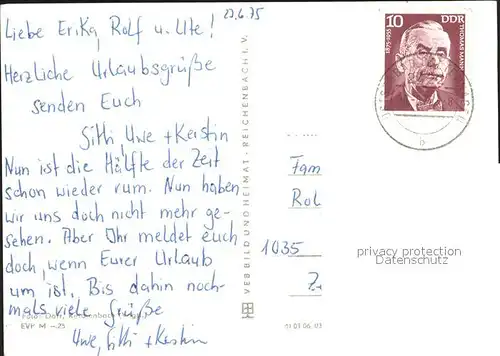 23.6.75
Liebe Erika, Rolf u. Ute!
Herzliche Urlaubsgrüße
senden Euch
Sitti, Uwe + Kerstin
Nun ist die Hälfte der Zeit
schon wieder rum. Nun haben
wir uns doch nicht mehr ge-
sehen. Aber Ihr meldet euch
doch, wenn Eurer Urlaub
um ist. Bis dahin noch-
mals viele Grüße
Uwe, Sitti + Kerstin
EVP M -,25
VEB BILD UND HEIMAT · REICHENBACH I. V.
01 01 06 03
10 DDR
1875-1955 THOMAS MANN
b
Fam
Rol
1035
privacy protection
Datenschutz